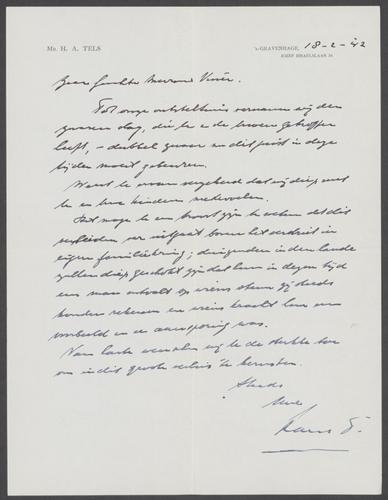 Mr. H. A. TELS
's-GRAVENHAGE, 18-2-'42
JOZEF ISRAELSLAAN
Zeer geachte Mevrouw
Tot onze ontsteltenis vernamen wij den
zwaren slag, die U en de Uwen getroffen
heeft, - dubbel zwaar en dit juist in deze
tijden moest gebeuren.
Weest U ervan verzekerd dat wij diep met
U en Uwe kinderen medevoelen.
Het moge U een troost zijn te weten dat dit
verscheiden ver uitgaat boven het verdriet in
eigen familiekring; duizenden in den lande
zullen diep geschokt zijn dat hun in dezen tijd
een man ontvalt op wiens steun zij steeds
konden rekenen en wiens kracht hun een
voorbeeld en een aansporing was.
Van harte wenschen wij U de sterkte toe
om in dit groote verlies te berusten.
Steeds
Uwe